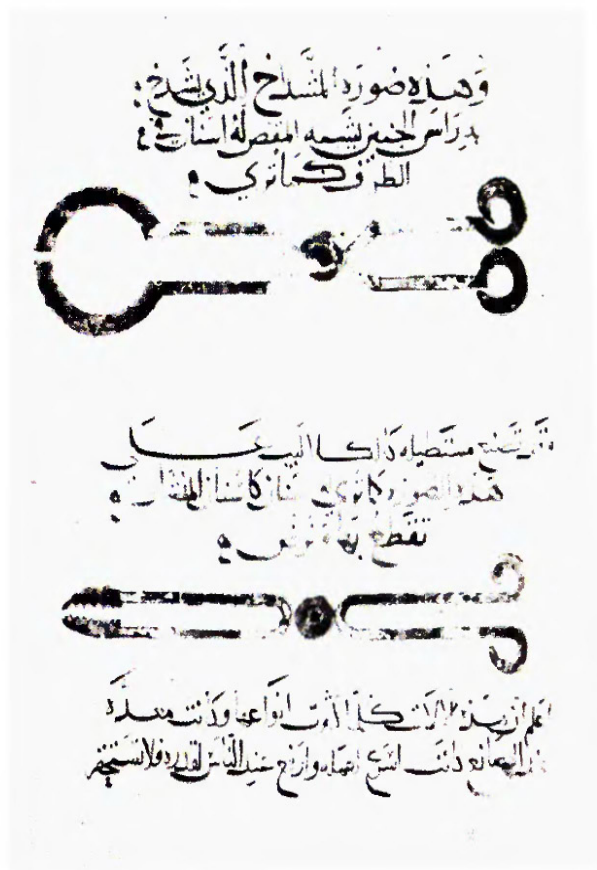 وَهَذِهِ صُورَة المشدَاخ الَّذي يشدخ
به رَاسَ الجنين يشبه المقص لهُ اسنان في
الطرف كما تري
وَقد تصنع مستطيله كالكلاليب عَلى
هذه الصورَه كما تري اسنان كاسنان المنشار
تقطع بها وترض
اعلم ان هذه الالات كلما كثرت انواعها وكانت معدة
عند الصانع كانت اسرع لعمله وارفع عند الناس لقدره فلا تستحقر